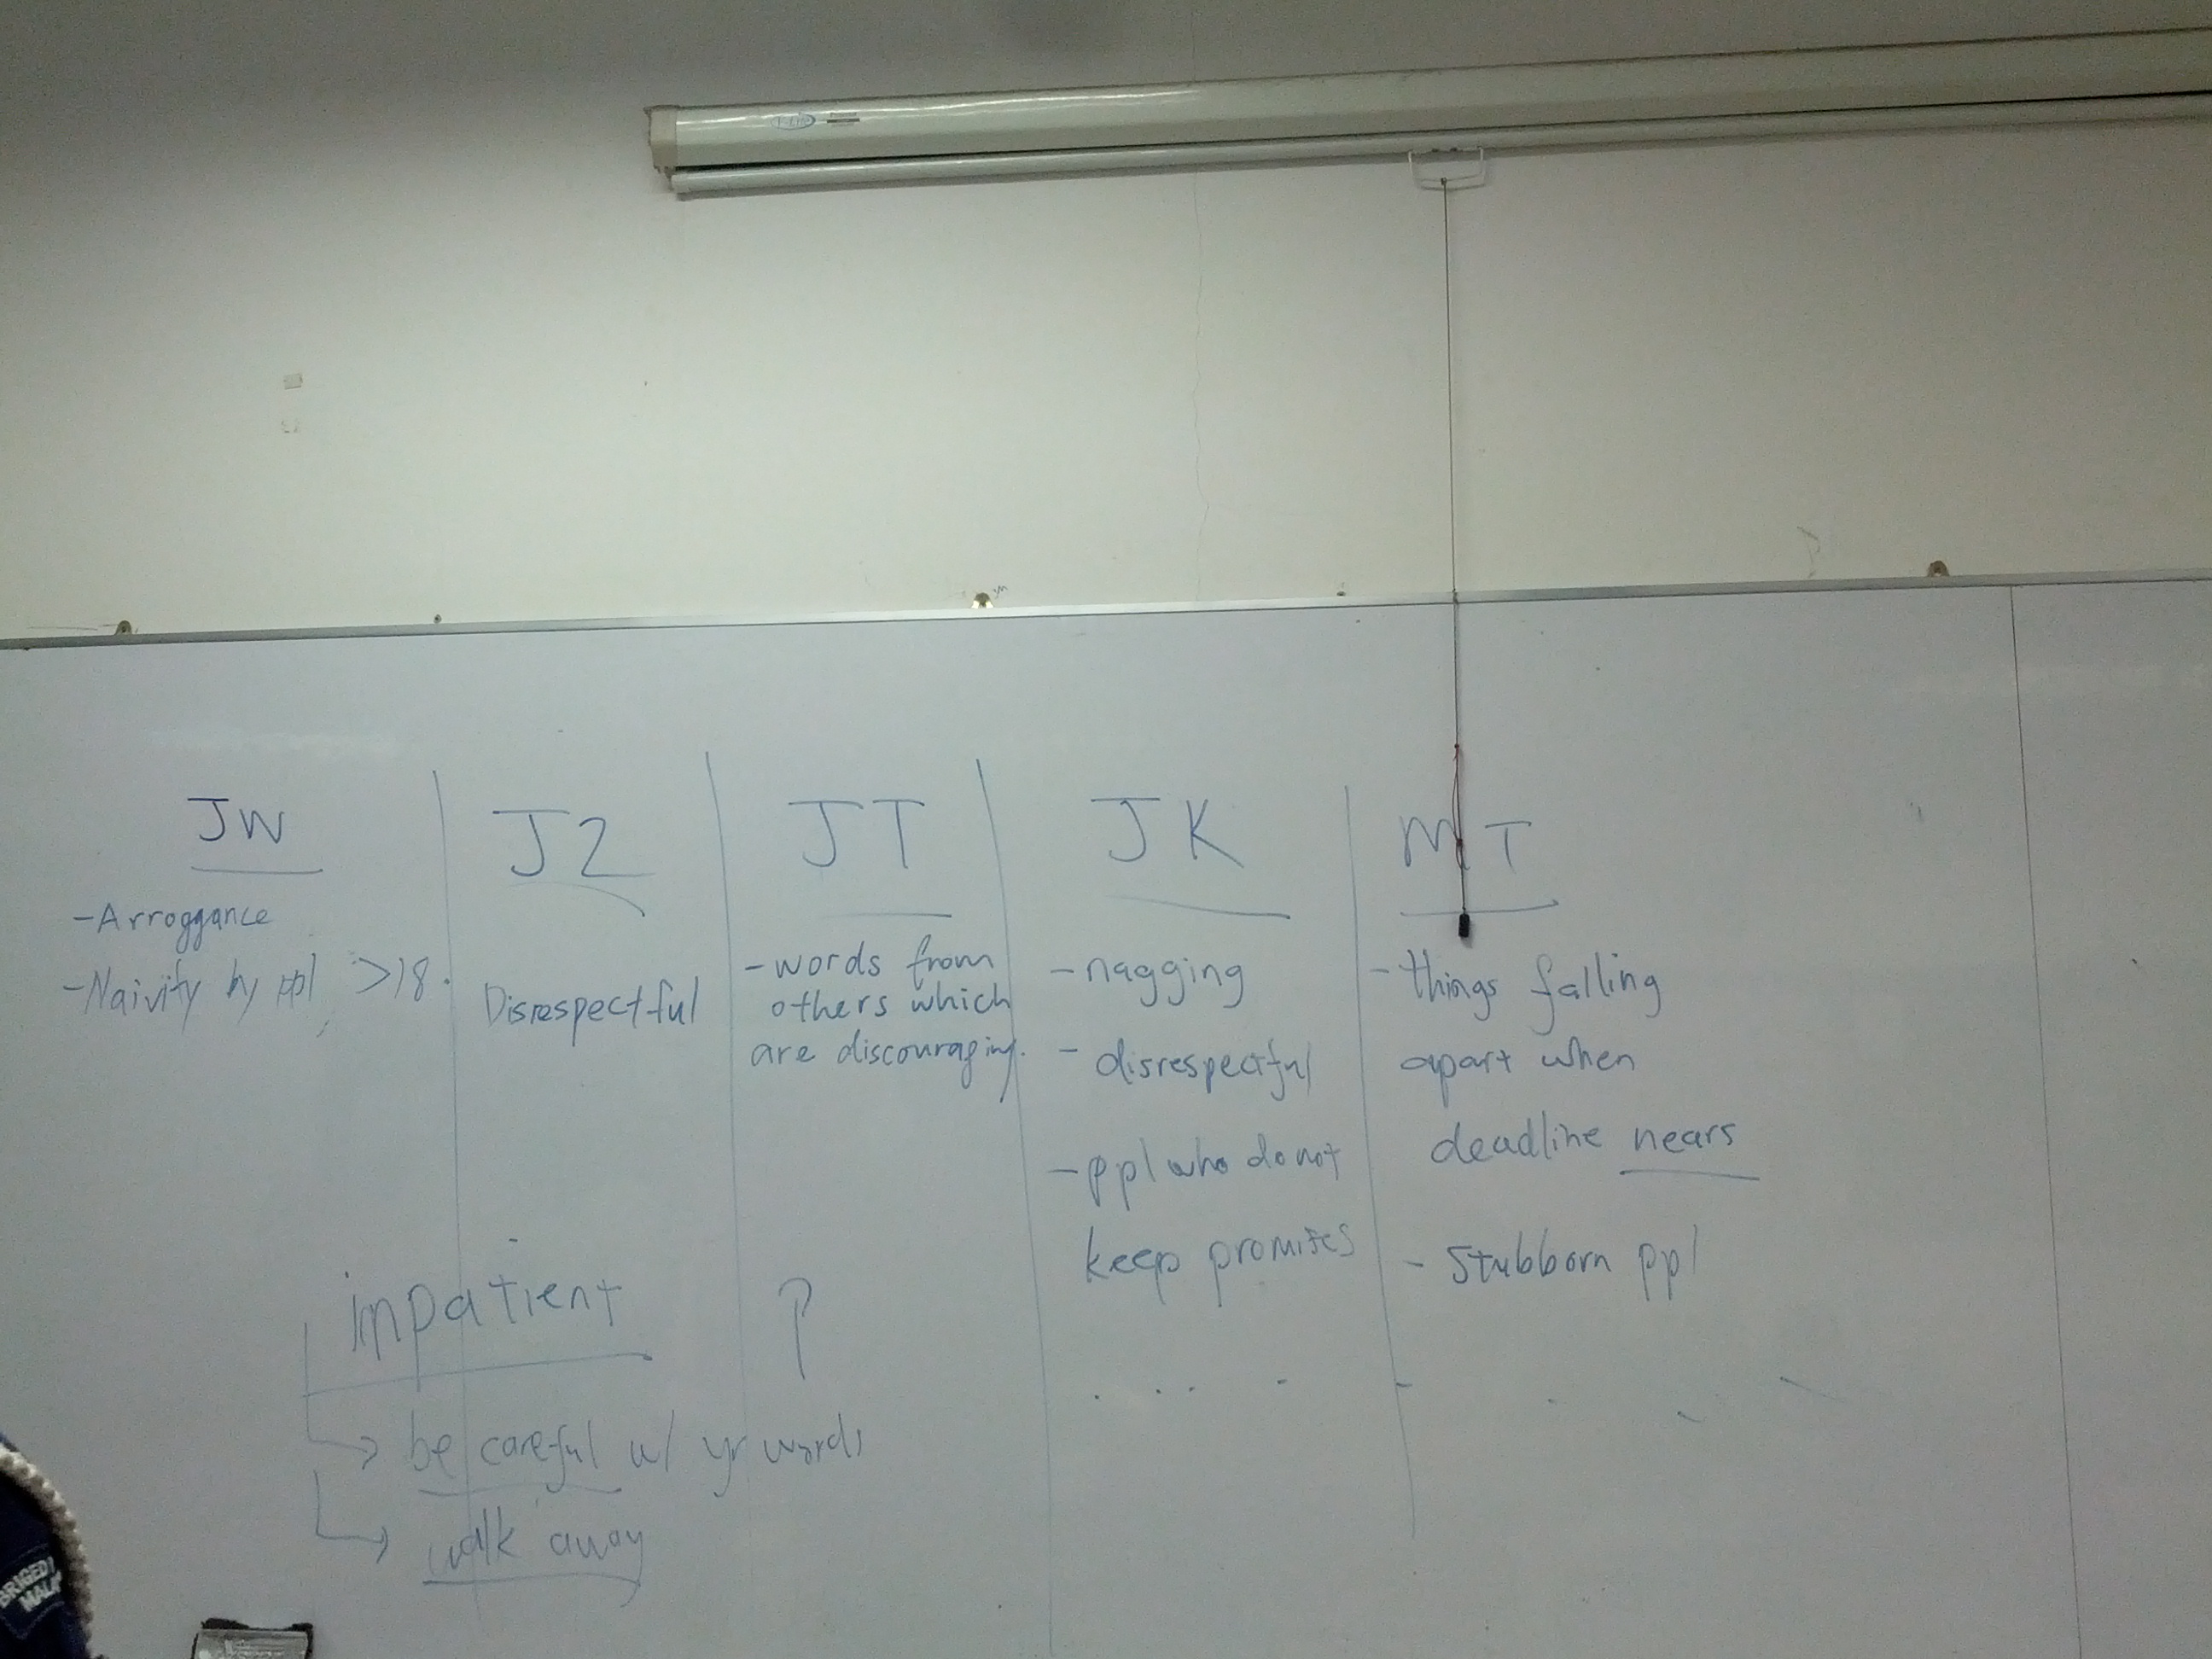 JW
-Arroggance
-Naivity by ppl >18.
JZ
Disrespectful
JT
-words from
others which
are discouraging.
JK
-nagging
- disrespectful
-ppl who do not
keep promises
MT
-things falling
apart when
deadline nears
- Stubborn ppl
impatient ?
be careful w/ yr words
walk away
BRIGED